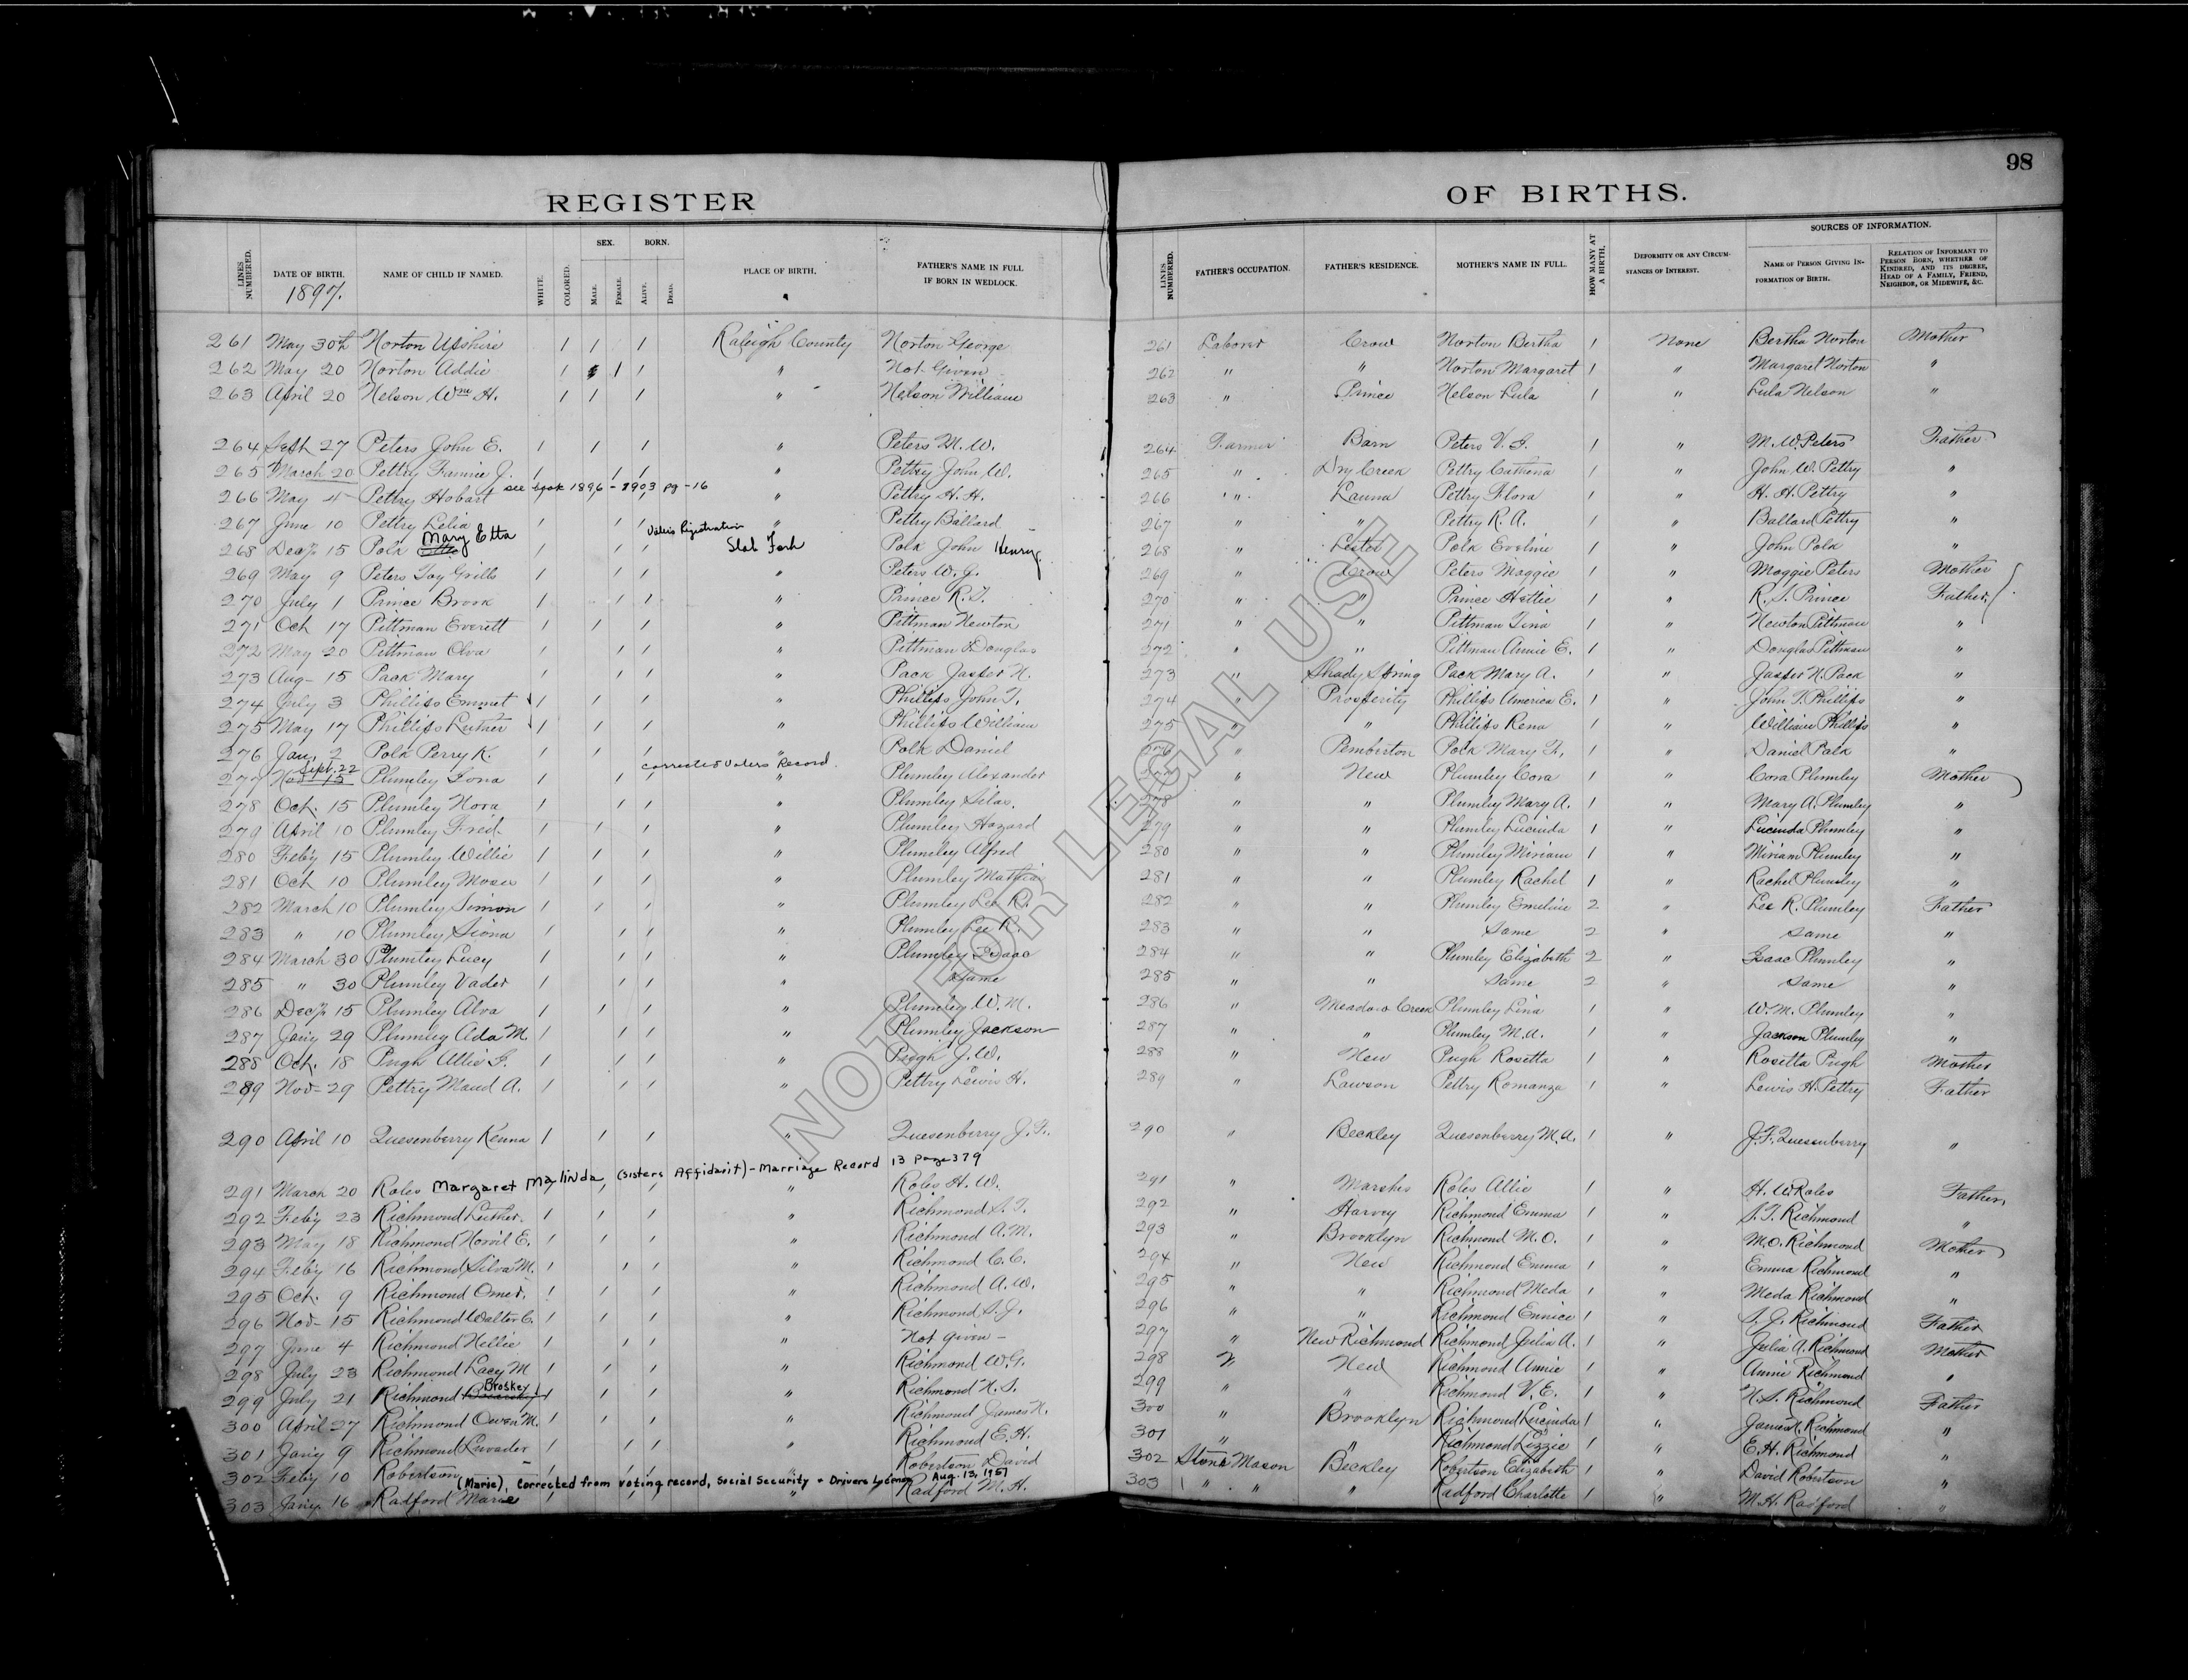 98
REGISTER OF BIRTHS.
LINES NUMBERED. DATE OF BIRTH. 1897. NAME OF CHILD IF NAMED. WHITE. COLORED. SEX. MALE. FEMALE. BORN. ALIVE. DEAD. PLACE OF BIRTH. FATHER'S NAME IN FULL IF BORN IN WEDLOCK. LINES NUMBERED. FATHER'S OCCUPATION. FATHER'S RESIDENCE. MOTHER'S NAME IN FULL. HOW MANY AT A BIRTH. DEFORMITY OR ANY CIRCUMSTANCES OF INTEREST. SOURCES OF INFORMATION. NAME OF PERSON GIVING INFORMATION OF BIRTH. RELATION OF INFORMANT TO PERSON BORN, WHETHER OF KINDRED, AND ITS DEGREE, HEAD OF A FAMILY, FRIEND, NEIGHBOR, OR MIDWIFE, &C.
261 May 30th Norton Upshire 1 1 1 Raleigh County Norton George 261 Laborer Crow Norton Bertha 1 None Bertha Norton Mother
262 May 20 Norton Addie 1 1 1 " Not Given 262 " " Norton Margaret 1 " Margaret Norton "
263 April 20 Nelson Wm H. 1 1 1 " Nelson William 263 " Prince Nelson Lula 1 " Lula Nelson "
264 Sept 27 Peters John E. 1 1 1 " Peters M. W. 264 Farmer Barn Peters V. 1 " M. W. Peters Father
265 March 20 Pettry Fannie J. 1 1 1 " Pettry John W. 265 " Dry Creek Pettry Cathena 1 " John W. Pettry "
266 May 4 Pettry Hobart see book 1896-1903 pg-16 " Pettry H. H. 266 " Launa Pettry Flora 1 " H. H. Pettry "
267 June 10 Pettry Lelia 1 1 1 " Pettry Ballard 267 " " Pettry R. A. 1 " Ballard Pettry "
Voters Registration
268 Dec 15 Polk Mary Etta 1 1 1 Slab Fork Polk John Henry 268 " Lester Polk Eveline 1 " John Polk "
269 May 9 Peters Toy Grills 1 1 1 " Peters W. G. 269 " Crow Peters Maggie 1 " Maggie Peters Mother
270 July 1 Prince Brook 1 1 1 " Prince R. 270 " " Prince Hettie 1 " Prince Father
271 Oct 17 Pittman Everett 1 1 1 " Pittman Newton 271 " " Pittman Tina 1 " Newton Pittman "
272 May 20 Pittman Olva 1 1 1 " Pittman Douglas 272 " " Pittman Annie E. 1 " Douglas Pittman "
273 Aug- 15 Pack Mary 1 1 1 " Pack Jasper N. 273 " Shady Spring Pack Mary A. 1 " Jasper N. Pack "
274 July 3 Phillips Emmet 1 1 1 " Phillips John T. 274 " Prosperity Phillips America E. 1 " John T. Phillips "
275 May 17 Phillips Luther 1 1 1 " Phillips William 275 " " Phillips Rena 1 " William Phillips "
276 Jan. 2 Polk Perry K. 1 1 1 " Polk Daniel 276 " Pemberton Polk Mary F. 1 " Daniel Polk "
Sept. 22 corrected Voters Record.
277 Nov 15 Plumley Iona 1 1 1 " Plumley Alexander 277 " New Plumley Cora 1 " Cora Plumley Mother
278 Oct. 15 Plumley Nora 1 1 1 " Plumley Silas. 278 " " Plumley Mary A. 1 " Mary A. Plumley "
279 April 10 Plumley Fred 1 1 1 " Plumley Hazard 279 " " Plumley Lucinda 1 " Lucinda Plumley "
280 Feby 15 Plumley Willie 1 1 1 " Plumley Alfred 280 " " Plumley Miriam 1 " Miriam Plumley "
281 Oct 10 Plumley Moses 1 1 1 " Plumley 281 " " Plumley Rachel 1 " Rachel Plumley "
282 March 10 Plumley Simon 1 1 1 " Plumley Lee R. 282 " " Plumley Emeline 2 " Lee R. Plumley Father
283 " 10 Plumley Siona 1 1 1 " Plumley Lee R. 283 " " Same 2 " Same "
284 March 30 Plumley Lucy 1 1 1 " Plumley Isaac 284 " " Plumley Elizabeth 2 " Isaac Plumley "
285 " 30 Plumley Vader 1 1 1 " Same 285 " " Same 2 " Same "
286 Dec 15 Plumley Alva 1 1 1 " Plumley W. M. 286 " Meadow Creek Plumley Lina 1 " W. M. Plumley "
287 Jany 29 Plumley Ada M. 1 1 1 " Plumley Jackson 287 " " Plumley M. A. 1 " Jackson Plumley "
288 Oct. 18 Pugh Allie G. 1 1 1 " Pugh J. W. 288 " New Pugh Rosetta 1 " Rosetta Pugh Mother
289 Nov- 29 Pettry Maud A. 1 1 1 " Pettry Lewis H. 289 " Lawson Pettry Romanza 1 " Lewis H. Pettry Father
290 April 10 Quesenberry Kenna 1 1 1 " Quesenberry J. F. 290 " Beckley Quesenberry M. A. 1 " J. F. Quesenberry "
291 March 20 Roles Margaret Malinda (Sisters Affidavit)-Marriage Record 13 page 379 " Roles H. W. 291 " Marshes Roles Allie 1 " H. W. Roles Father
292 Feby 23 Richmond Luther. 1 1 1 " Richmond S. T. 292 " Harvey Richmond Emma 1 " S. T. Richmond "
293 May 18 Richmond Norvil E. 1 1 1 " Richmond A. M. 293 " Brooklyn Richmond M. O. 1 " M. O. Richmond Mother
294 Feby 16 Richmond Silva M. 1 1 1 " Richmond C. C. 294 " New Richmond Emma 1 " Emma Richmond "
295 Oct. 9 Richmond Omer. 1 1 1 " Richmond A. W. 295 " " Richmond Meda 1 " Meda Richmond "
296 Nov- 15 Richmond Walter C. 1 1 1 " Richmond S. J. 296 " " Richmond Eunice 1 " S. J. Richmond Father
297 June 4 Richmond Nellie 1 1 1 " Not given- 297 " New Richmond Richmond Julia A. 1 " Julia A. Richmond Mother
298 July 23 Richmond Lacy M 1 1 1 " Richmond W. G. 298 " New Richmond Annie 1 " Annie Richmond "
299 July 21 Richmond Broskey 1 1 1 " Richmond N. S. 299 " " Richmond V. E. 1 " N. S. Richmond Father
300 April 27 Richmond Owen M. 1 1 1 " Richmond James N. 300 " Brooklyn Richmond Lucinda 1 " James N. Richmond "
301 Jany 9 Richmond Luvader 1 1 1 " Richmond E. H. 301 " " Richmond Lizzie 1 " E. H. Richmond "
302 Feby 10 Robertson 1 1 1 " Robertson David 302 Stone Mason Beckley Robertson Elizabeth 1 " David Robertson "
(Marie), Corrected from voting record, Social Security + Drivers Aug. 13, 1951
303 Jany 16 Radford Marie " Radford M. H. 303 " " " Radford Charlotte 1 " M. H. Radford "
NOT FOR LEGAL USE